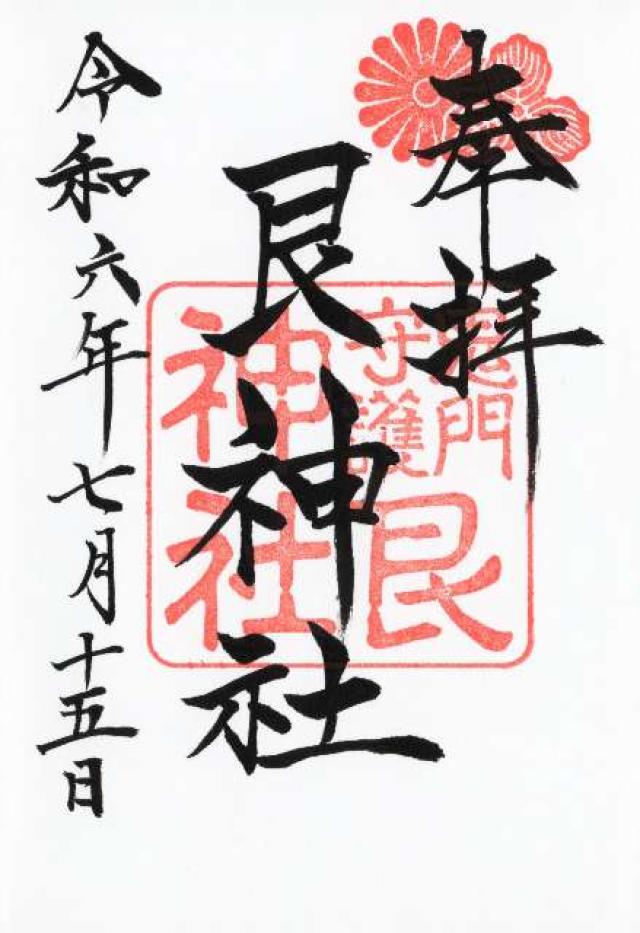 奉拝
鬼門
守護
艮
神社
艮神社
令和六年七月十五日